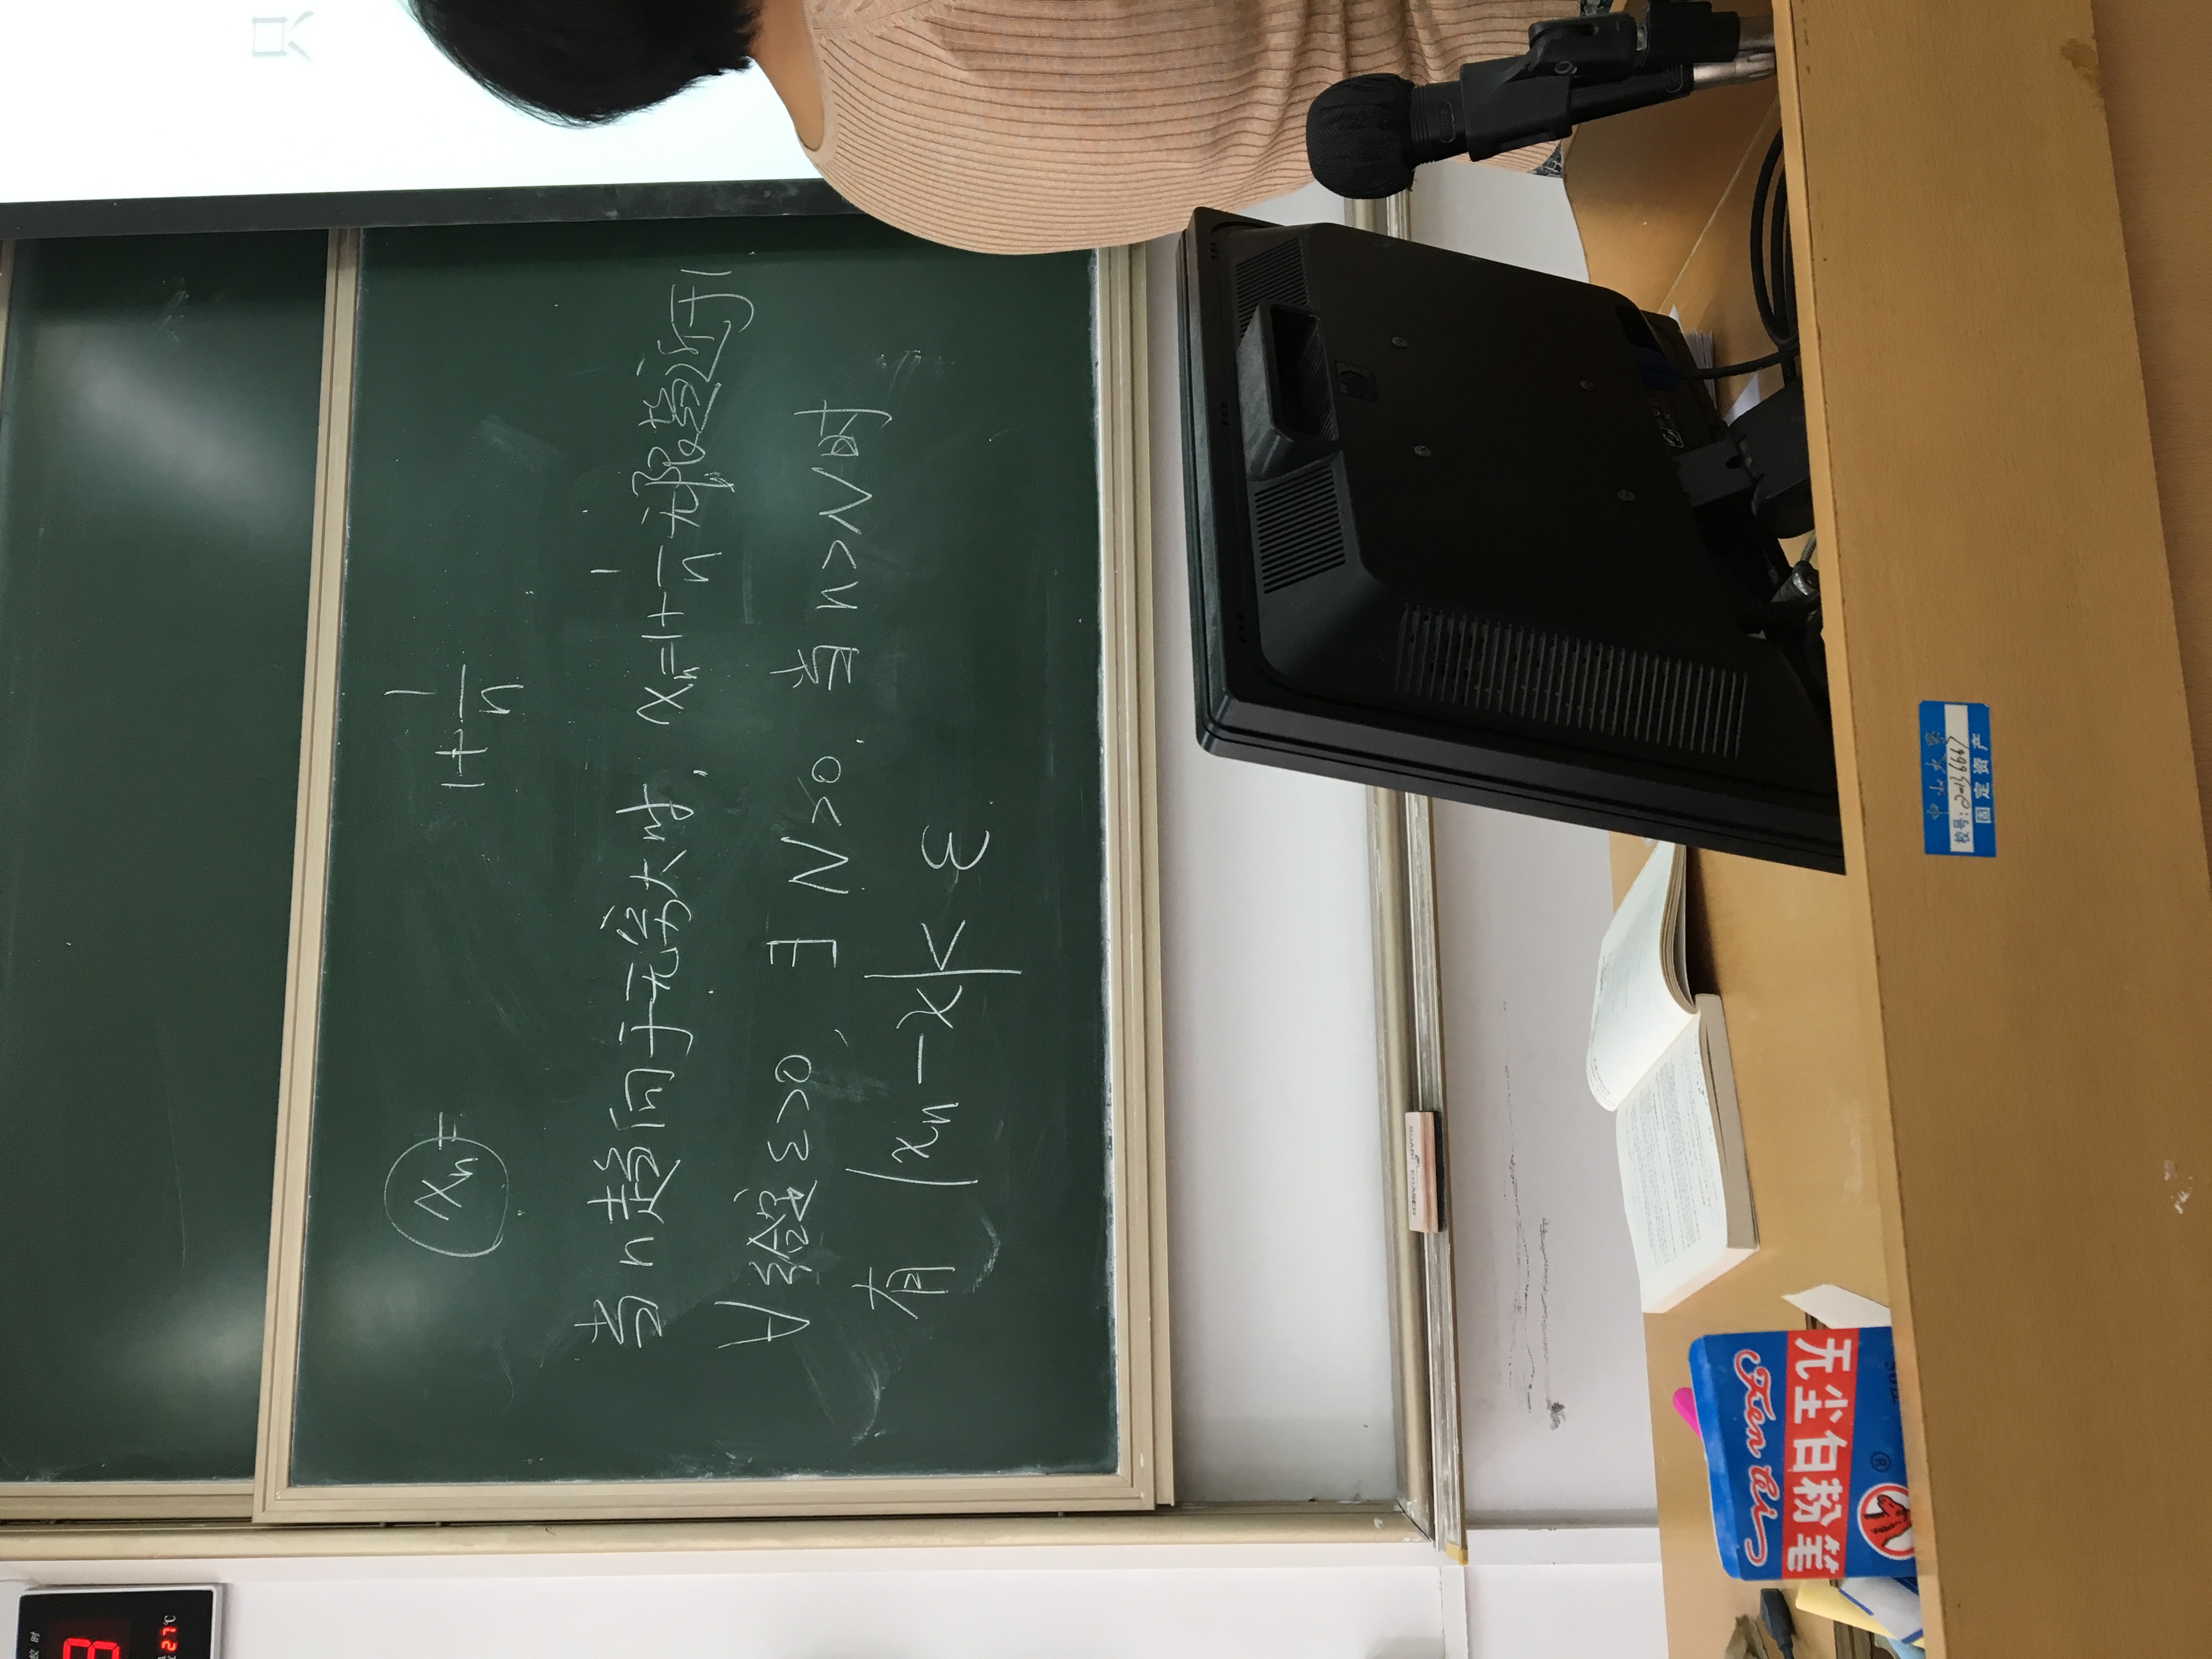 校时
27℃
只
xₙ= 1+1/n
当n趋向于无穷大时, xₙ=1+1/n 无限趋近于1
∀给定ε>0, ∃ N>0. 当n>N时
有 |xₙ-x|< ε
BOARD ERASER
无尘白粉笔
®
中山大学
校号:20136667
固定资产